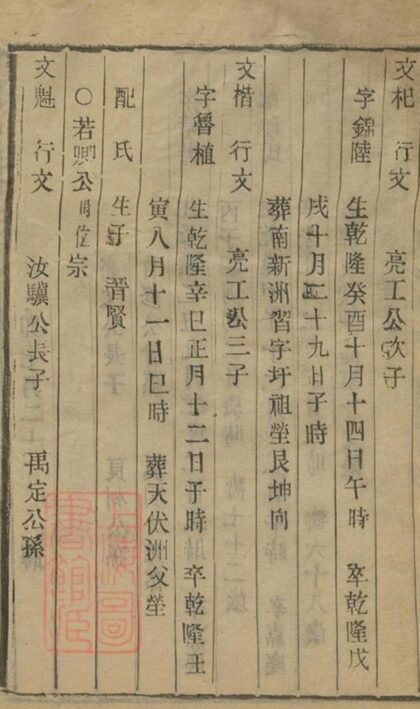 文杞 行文 亮工公次子
字錦陸 生乾隆癸酉十月十四日午時 卒乾隆戊
戌十月二十九日子時
葬南新洲習字圩祖塋艮坤向
文楷 行文 亮工公三子
字魯植 生乾隆辛巳正月十二日子時 卒乾隆壬
寅八月十一日巳時 葬天伏洲父塋
配氏 生子 晋賢
○若卿公 位宗
文魁 行文 汝驥公長子 禹定公孫